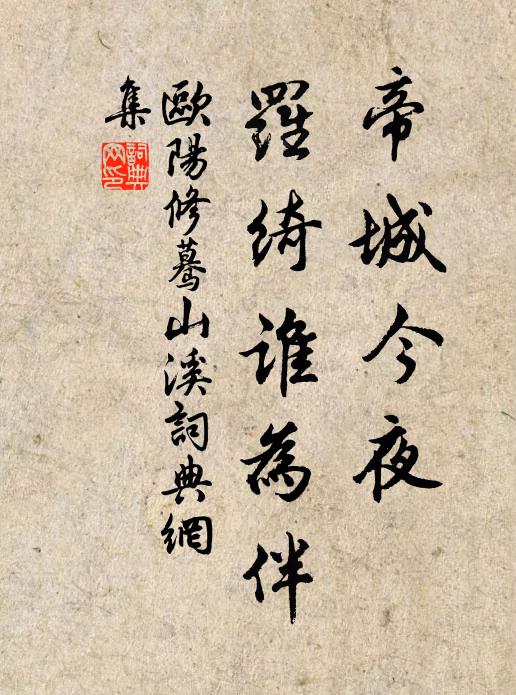 帝城今夜
羅綺誰為伴
歐陽修驀山溪詞典網
集
詞典網印